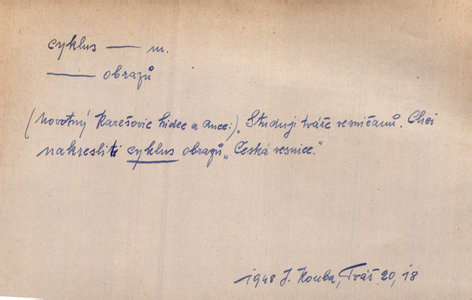 cyklus — m.
— obrazů
(Novotný Karešovic lidce a dnee:) „Studuji tváře vesničanů. Chci
nakresliti cyklus obrazů „Česká vesnice."
1948 J. Kouba, Tváš 20, 18